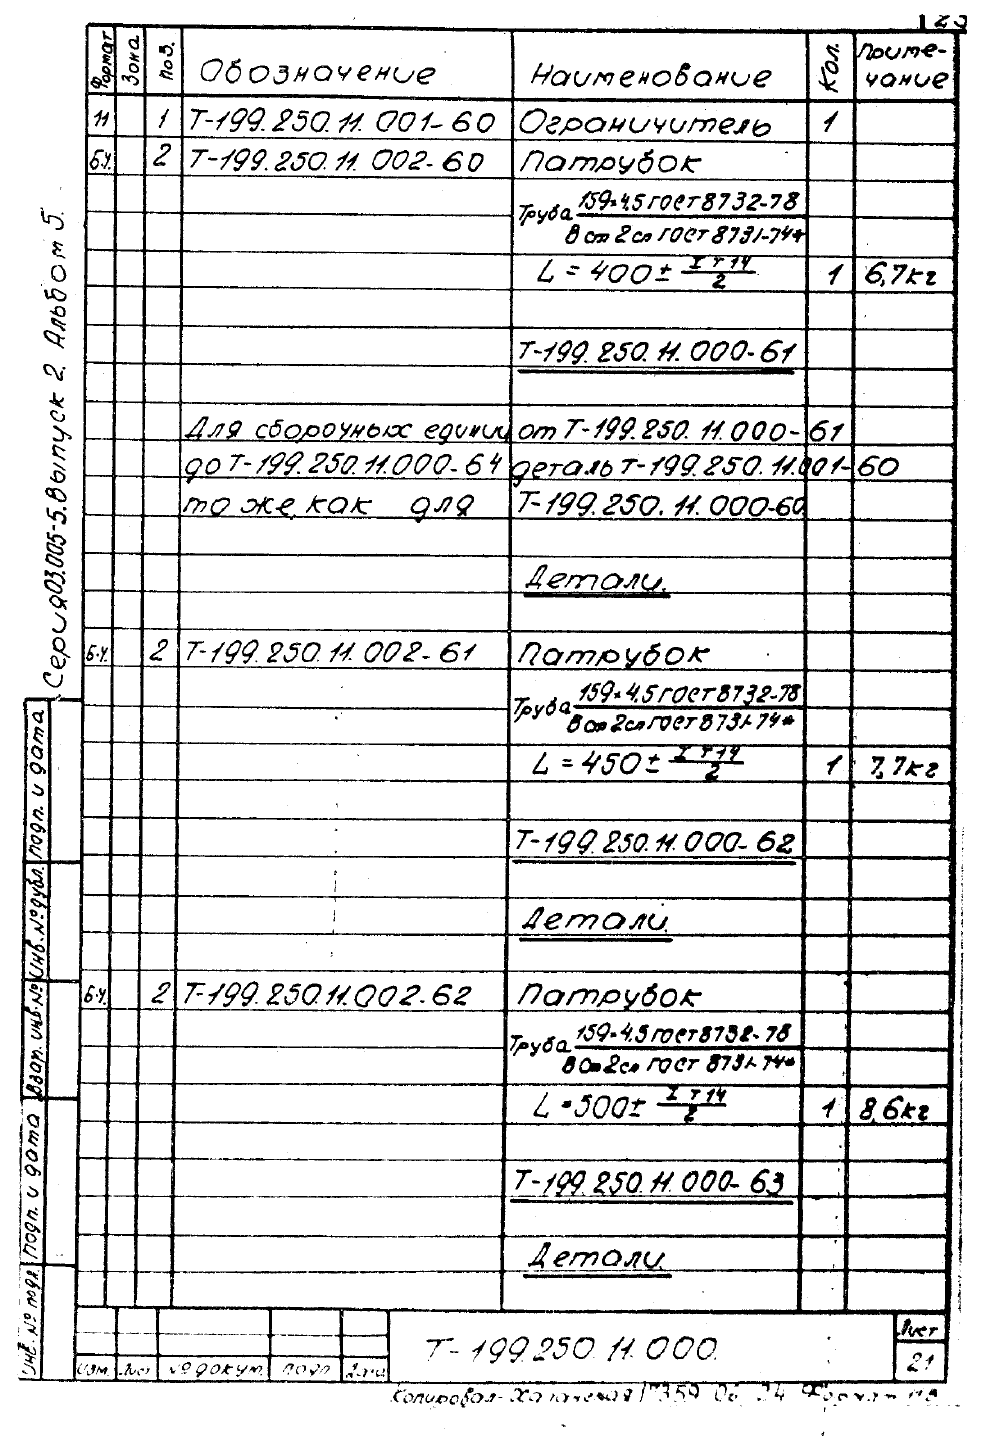 123
Формат Зона Поз. Обозначение Наименование Кол. Приме-
чание
11 1 Т-199.250.11.001-60 Ограничитель 1
Б.Ч. 2 Т-199.250.11.002-60 Патрубок
Труба 159×4,5 ГОСТ 8732-78
В ст 2сп ГОСТ 8731-74*
L = 400 ± IT14/2 1 6,7кг
Т-199.250.11.000-61
Для сборочных единиц от Т-199.250.11.000-61
до Т-199.250.11.000-64 деталь Т-199.250.11.001-60
то же, как для Т-199.250.11.000-60
Детали.
Б.Ч. 2 Т-199.250.11.002-61 Патрубок
Труба 159×4,5 ГОСТ 8732-78
В ст 2сп ГОСТ 8731-74*
L = 450 ± IT14/2 1 7,7кг
Т-199.250.11.000-62
Детали.
Б.Ч. 2 Т-199.250.11.002-62 Патрубок
Труба 159×4,5 ГОСТ 8732-78
В ст 2сп ГОСТ 8731-74*
L = 500 ± IT14/2 1 8,6кг
Т-199.250.11.000-63
Детали.
Серия 03.005-5. Выпуск 2. Альбом 5.
Подп. и дата
Инв. № дубл.
Взар. инв. №
Подп. и дата
Инв. № подл.
Изм. Лист № докум. подп. Дата
Т-199.250.11.000.
Лист
21
Копировал-
Формат